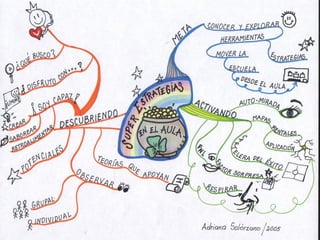 SÚPER ESTRATEGIAS
EN EL AULA
META
CONOCER Y EXPLORAR
HERRAMIENTAS
MOVER LA
ESCUELA
ESTRATEGIAS
DESDE EL AULA
ACTIVANDO
AUTO-MIRADA
MAPAS MENTALES
APLICACIÓN
FUERA DEL ÉXITO
POR SORPRESA
RESPIRAR
TEORÍAS QUE APOYAN
OBSERVAR
GRUPAL
INDIVIDUAL
POTENCIALES
DESCUBRIENDO
¿QUÉ BUSCO?
¿DISFRUTO CON...?
¿SOY CAPAZ?
SABOREAR
RETROALIMENTAR
Adriana Solórzano/2005